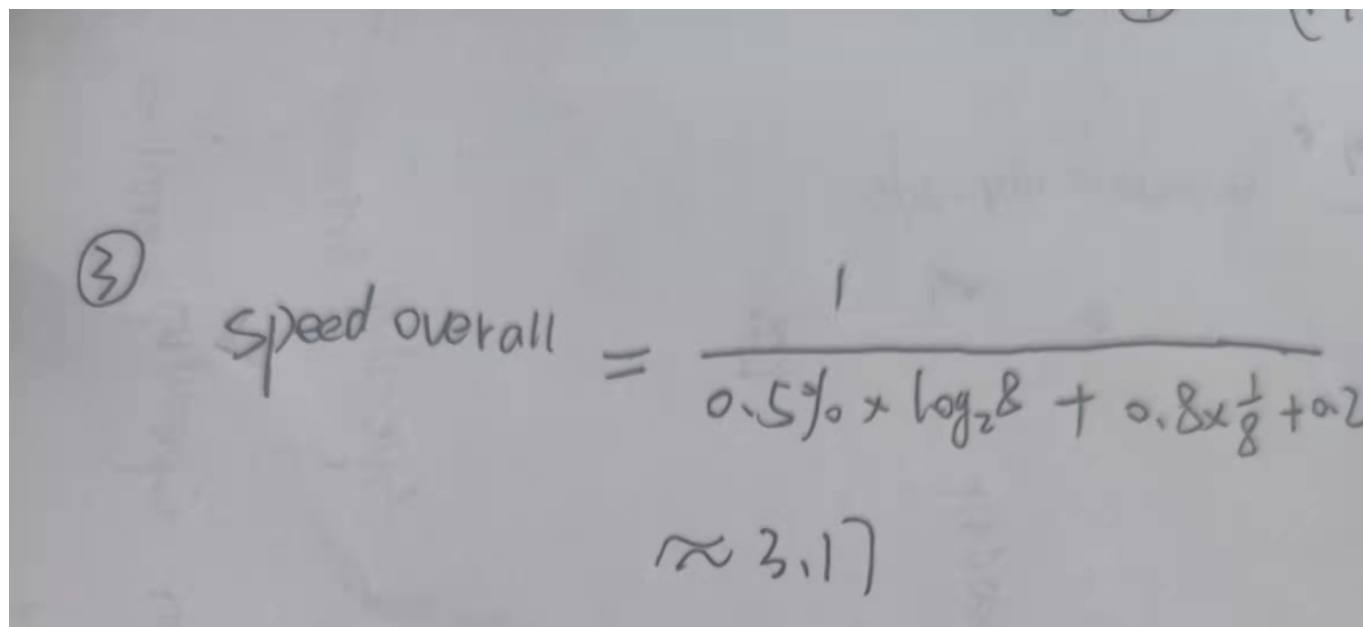 ③
speed overall = 1 / (0.5% × log₂8 + 0.8 × 1/8 + 0.2
≈ 3.17